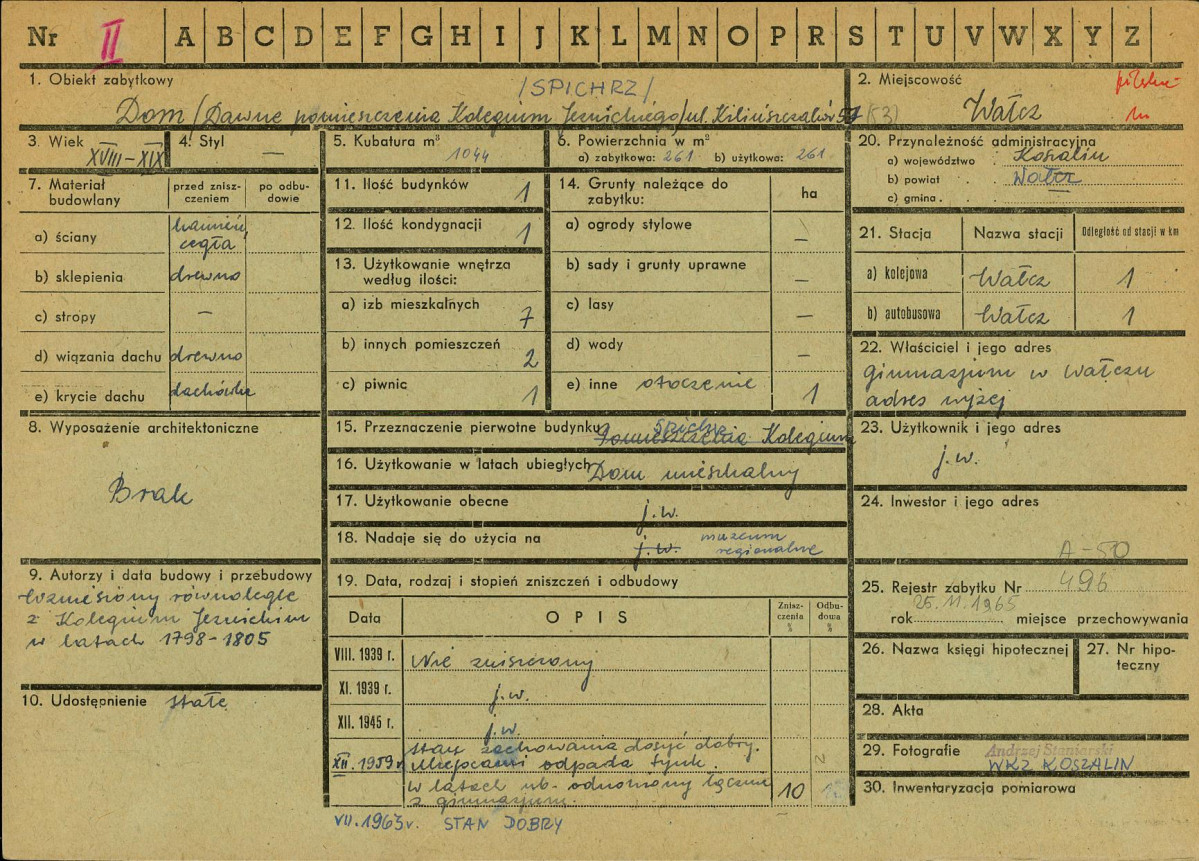 Nr II A B C D E F G H I J K L M N O P R S T U V W X Y Z
1. Obiekt zabytkowy
/SPICHRZ/
Dom /Dawne pomieszczenia Kolegium Jezuickiego/ ul. Kilińszczaków 51 (53)
2. Miejscowość
Wałcz
pilskie
3. Wiek
XVIII-XIX
4. Styl
—
5. Kubatura m³
1044
6. Powierzchnia w m²
a) zabytkowa: 261 b) użytkowa: 261
20. Przynależność administracyjna
a) województwo Koszalin
b) powiat Wałcz
c) gmina
7. Materiał budowlany
przed zniszczeniem
po odbudowie
a) ściany kamień, cegła
b) sklepienia drewno
c) stropy —
d) wiązania dachu drewno
e) krycie dachu dachówka
11. Ilość budynków 1
12. Ilość kondygnacji 1
13. Użytkowanie wnętrza
według ilości:
a) izb mieszkalnych 7
b) innych pomieszczeń 2
c) piwnic 1
14. Grunty należące do
zabytku:
ha
a) ogrody stylowe —
b) sady i grunty uprawne —
c) lasy —
d) wody —
e) inne otoczenie 1
21. Stacja
Nazwa stacji
Odległość od stacji w km
a) kolejowa Wałcz 1
b) autobusowa Wałcz 1
22. Właściciel i jego adres
gimnazjum w Wałczu
adres wyżej
8. Wyposażenie architektoniczne
Brak
15. Przeznaczenie pierwotne budynku spichrz
Pomieszczenia Kolegium
16. Użytkowanie w latach ubiegłych Dom mieszkalny
17. Użytkowanie obecne j.w.
18. Nadaje się do użycia na j.w. muzeum
regionalne
23. Użytkownik i jego adres
j.w.
24. Inwestor i jego adres
A-50
9. Autorzy i data budowy i przebudowy
wzniesiony równolegle
z Kolegium Jezuickim
w latach 1798-1805
10. Udostępnienie stałe
19. Data, rodzaj i stopień zniszczeń i odbudowy
Data
OPIS
Zniszczenia %
Odbudowa %
VIII. 1939 r. Nie zniszczony
XI. 1939 r. j.w.
XII. 1945 r. j.w.
XII. 1959 r. stan zachowania dosyć dobry.
Miejscami odpada tynk.
w latach ub. odnowiony łącznie
z gimnazjum. 10
VII. 1963 r. STAN DOBRY
25. Rejestr zabytku Nr 496
25. 11. 1965
rok miejsce przechowywania
26. Nazwa księgi hipotecznej
27. Nr hipoteczny
28. Akta
29. Fotografie Andrzej Staniarski
WKZ KOSZALIN
30. Inwentaryzacja pomiarowa